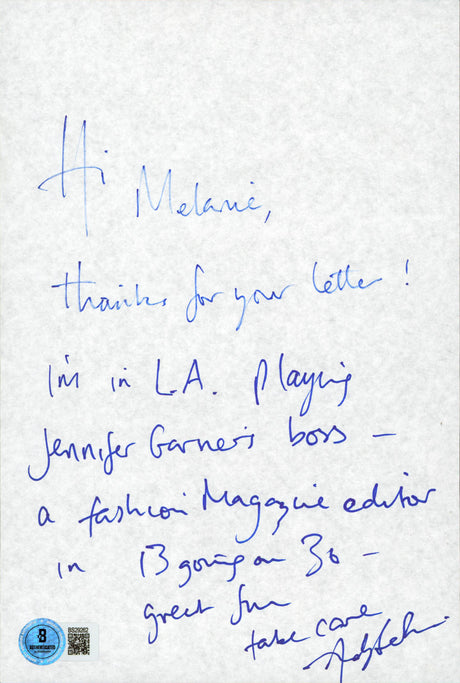 Hi
Melanie,
thanks for your letter!
I'm in L.A. playing
Jennifer Garner's boss –
a fashion Magazine editor
in 13 going on 30 –
great fun
take care
B
BS29262